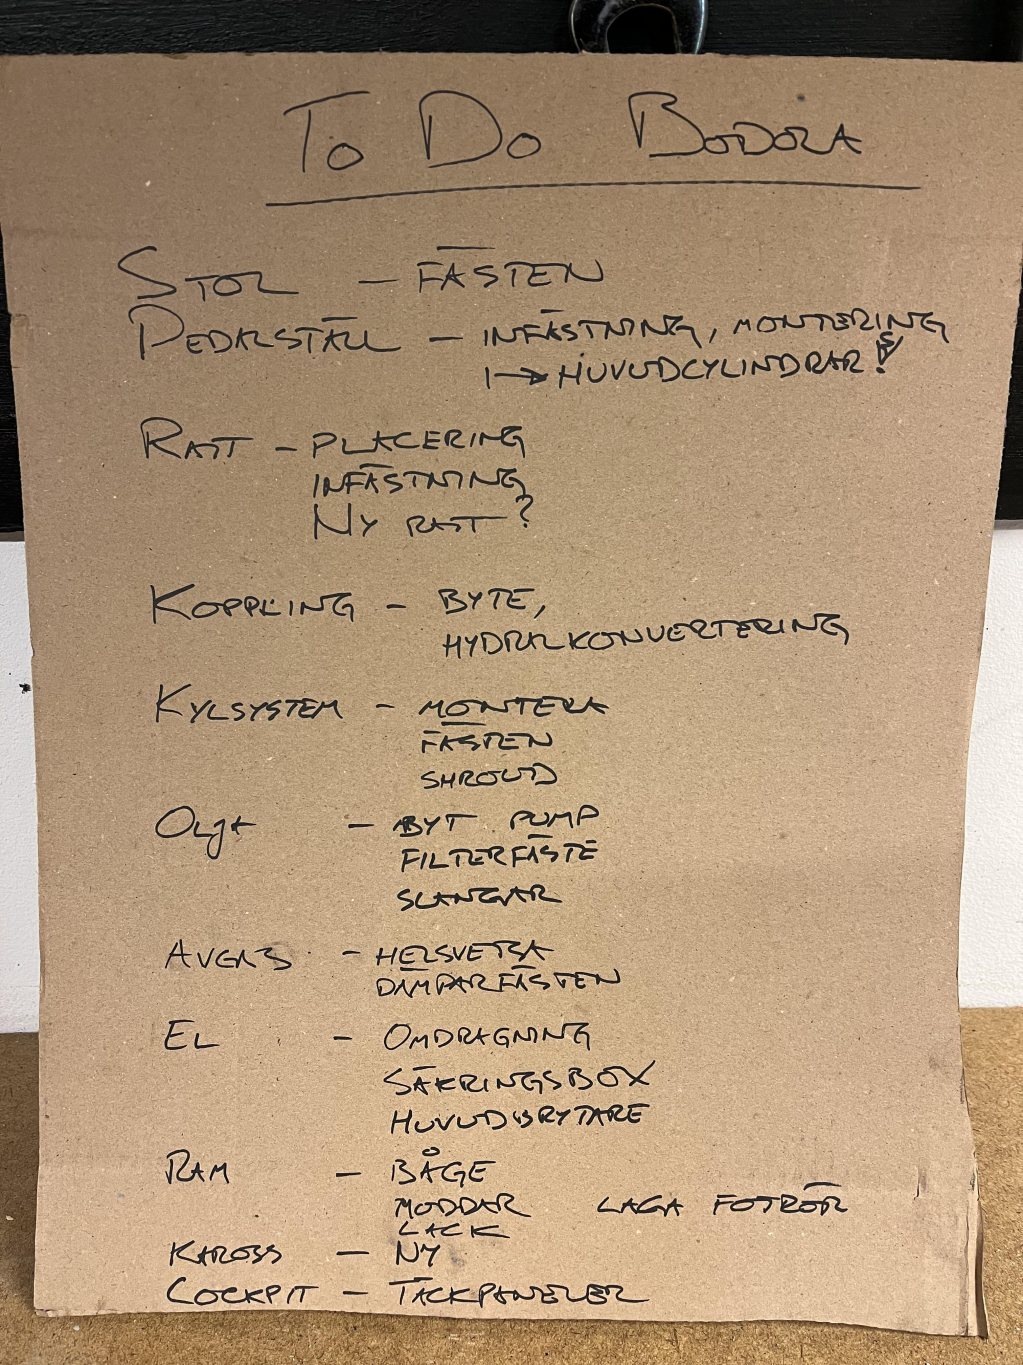 To Do BODORA
STOL - FÄSTEN
PEDALSTÄLL - INFÄSTNING, MONTERING
HUVUDCYLINDRAR!
RATT - PLACERING
INFÄSTNING
NY RATT?
KOPPLING - BYTE,
HYDRALKONVERTERING
KYLSYSTEM - MONTERA
FÄSTEN
SHROUD
OLJA - BYT PUMP
FILTERFÄSTE
SLANGAR
AVGAS - HELSVETSA
DÄMPARFÄSTEN
EL - OMDRAGNING
SÄKRINGSBOX
HUVUDBRYTARE
RAM - BÅGE
MODDAR LAGA FOTRÖR
LACK
KAROSS - NY
COCKPIT - TÄCKPANELER